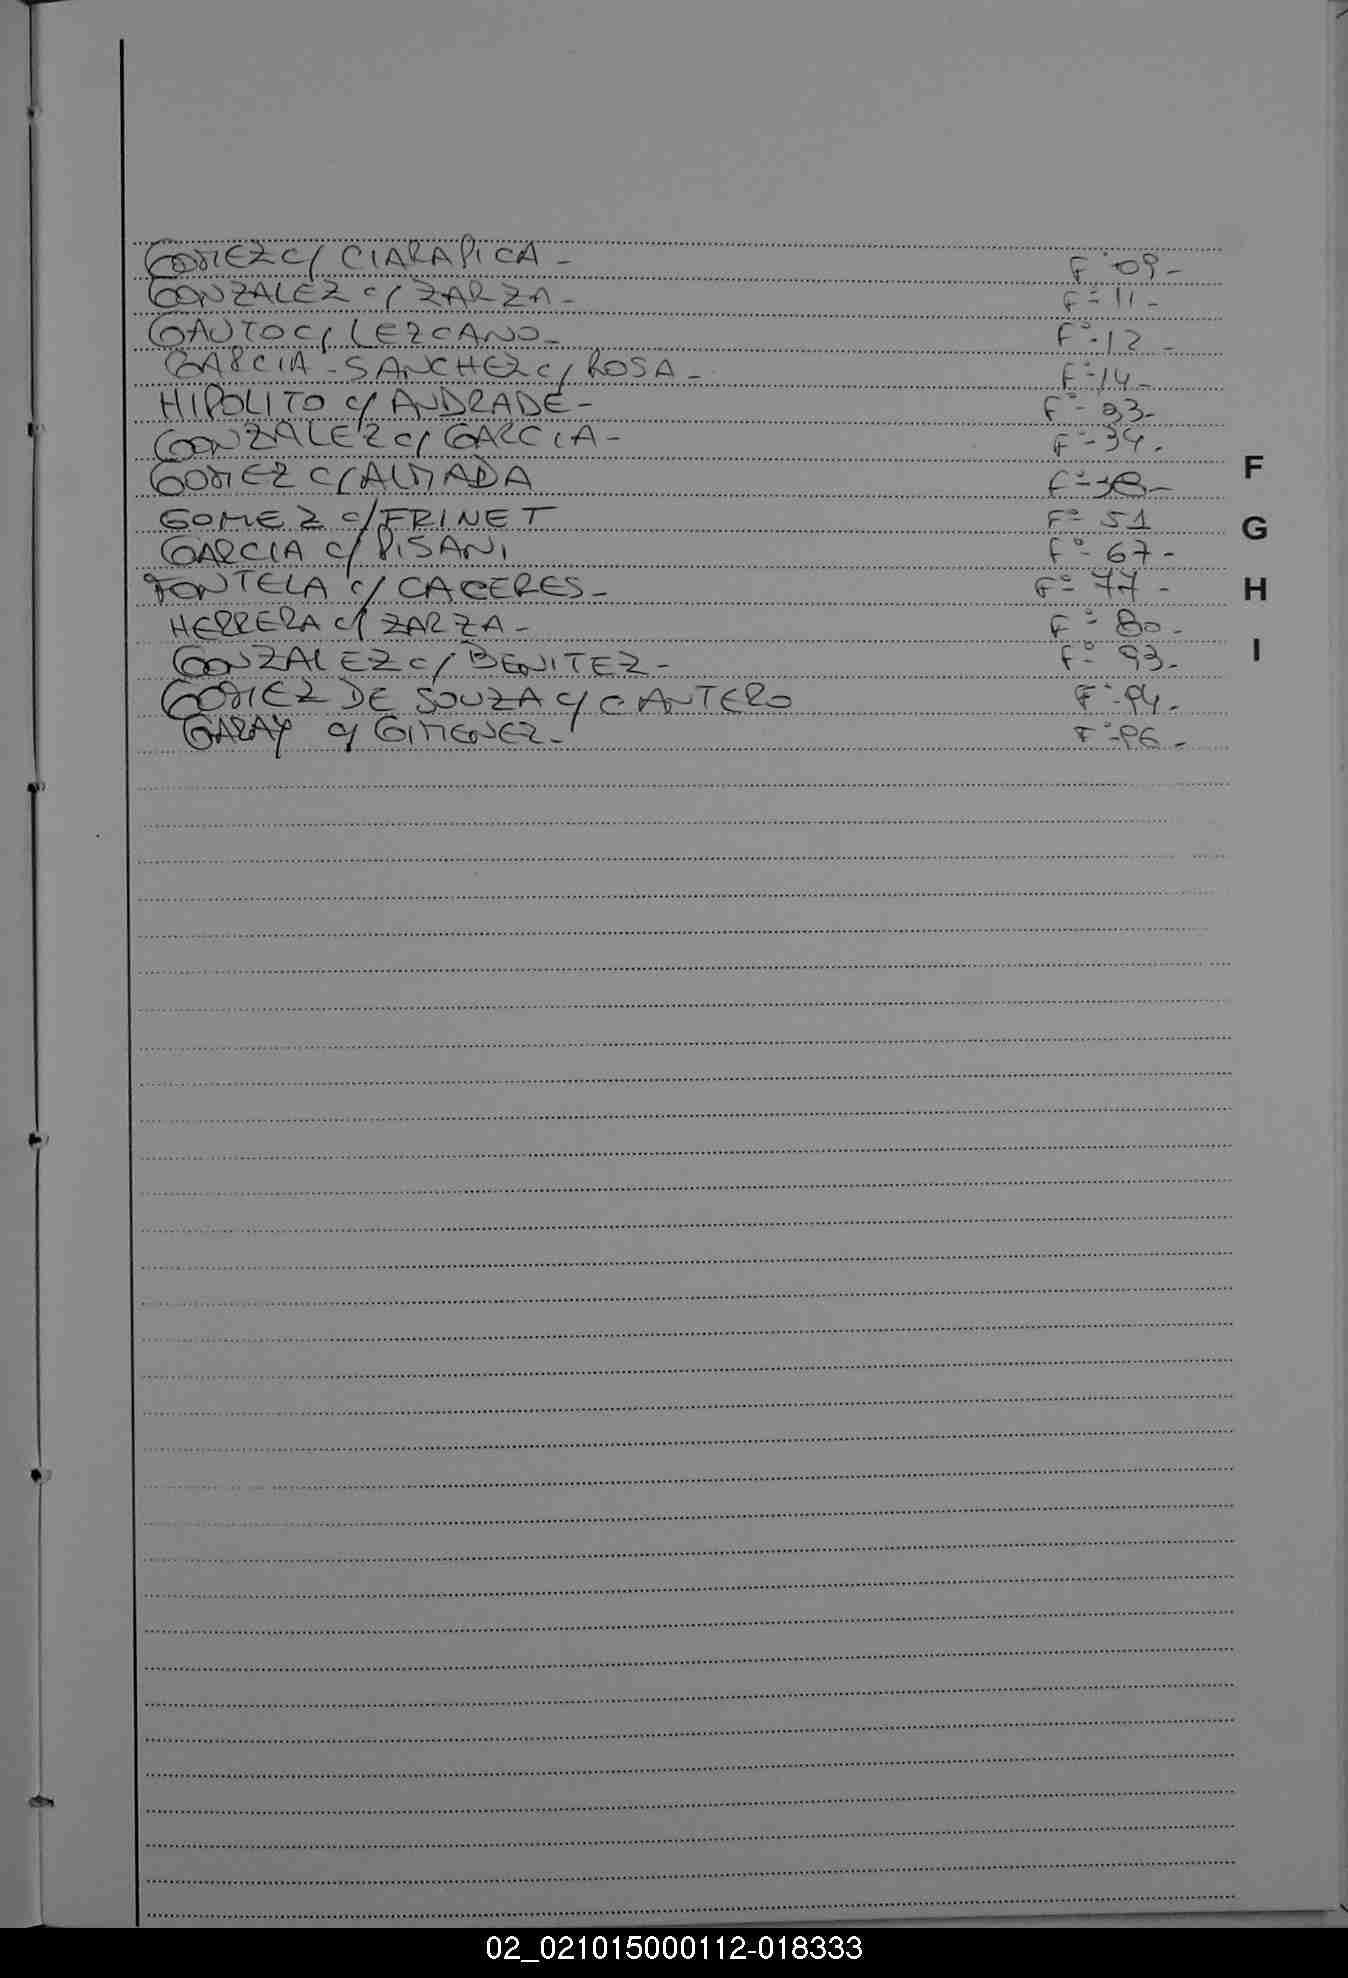 GOMEZ c/ CIARAPICA - F° 09 -
GONZALEZ c/ ZARZA - F° 11 -
GAUTO c/ LEZCANO - F° 12 -
GARCIA - SANCHEZ c/ ROSA - F° 14 -
HIPOLITO c/ ANDRADE - F°
GONZALEZ c/ GARCIA - F° 34 -
GOMEZ C/ ALMADA F°
F
GOMEZ c/ FRINET F° 51
G
GARCIA c/ PISANI F° 67 -
FONTELA c/ CACERES - F° 77 -
H
HERRERA c/ ZARZA - F° 80 -
I
GONZALEZ c/ BENITEZ - F° 93 -
GOMEZ DE SOUZA c/ CANTERO F° 94 -
GARAY c/ GIMENEZ - F° 96 -
02_021015000112-018333